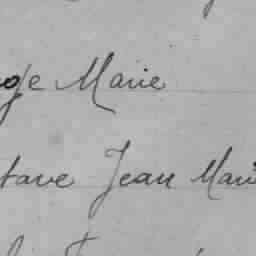 ge Marie
tave Jean Marie